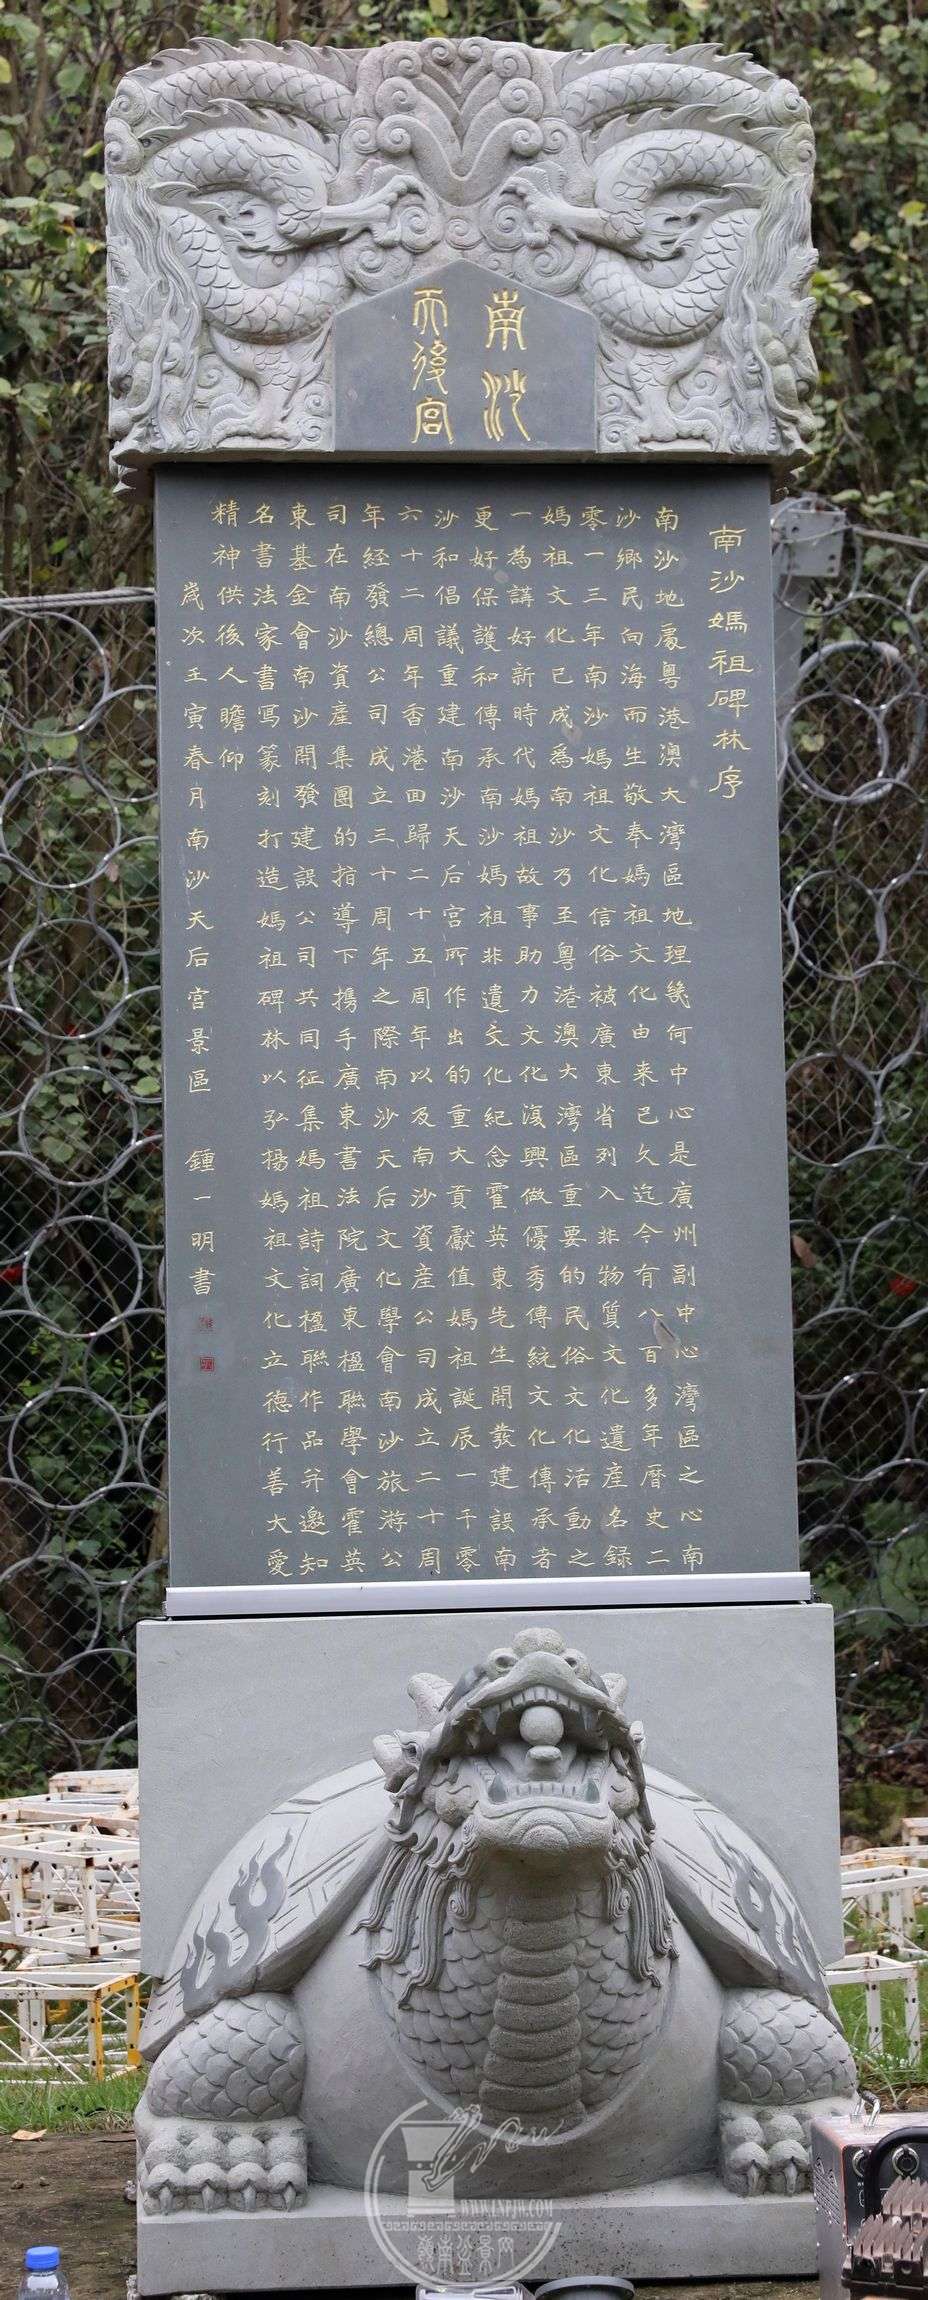 南沙
天後宮
南沙媽祖碑林序
南沙地處粵港澳大灣區地理幾何中心是廣州副中心灣區之心南
沙鄉民向海而生敬奉媽祖文化由来已久迄今有八百多年曆史二
零一三年南沙媽祖文化信俗被廣東省列入非物質文化遺産名録
媽祖文化已成爲南沙乃至粵港澳大灣區重要的民俗文化活動之
一為講好新時代媽祖故事助力文化復興做優秀傳統文化傳承者
更好保護和傳承南沙媽祖非遺文化紀念霍英東先生開發建設南
沙和倡議重建南沙天后宮所作出的重大貢獻值媽祖誕辰一千零
六十二周年香港回歸二十五周年以及南沙資産公司成立二十周
年經發總公司成立三十周年之際南沙天后文化學會南沙旅游公
司在南沙資産集團的指導下攜手廣東書法院廣東楹聯學會霍英
東基金會南沙開發建設公司共同征集媽祖詩詞楹聯作品并邀知
名書法家書寫篆刻打造媽祖碑林以弘揚媽祖文化立德行善大愛
精神供後人瞻仰
歲次壬寅春月南沙天后宮景區 鍾一明書
WWW.LNPJW.COM
嶺南盆景网